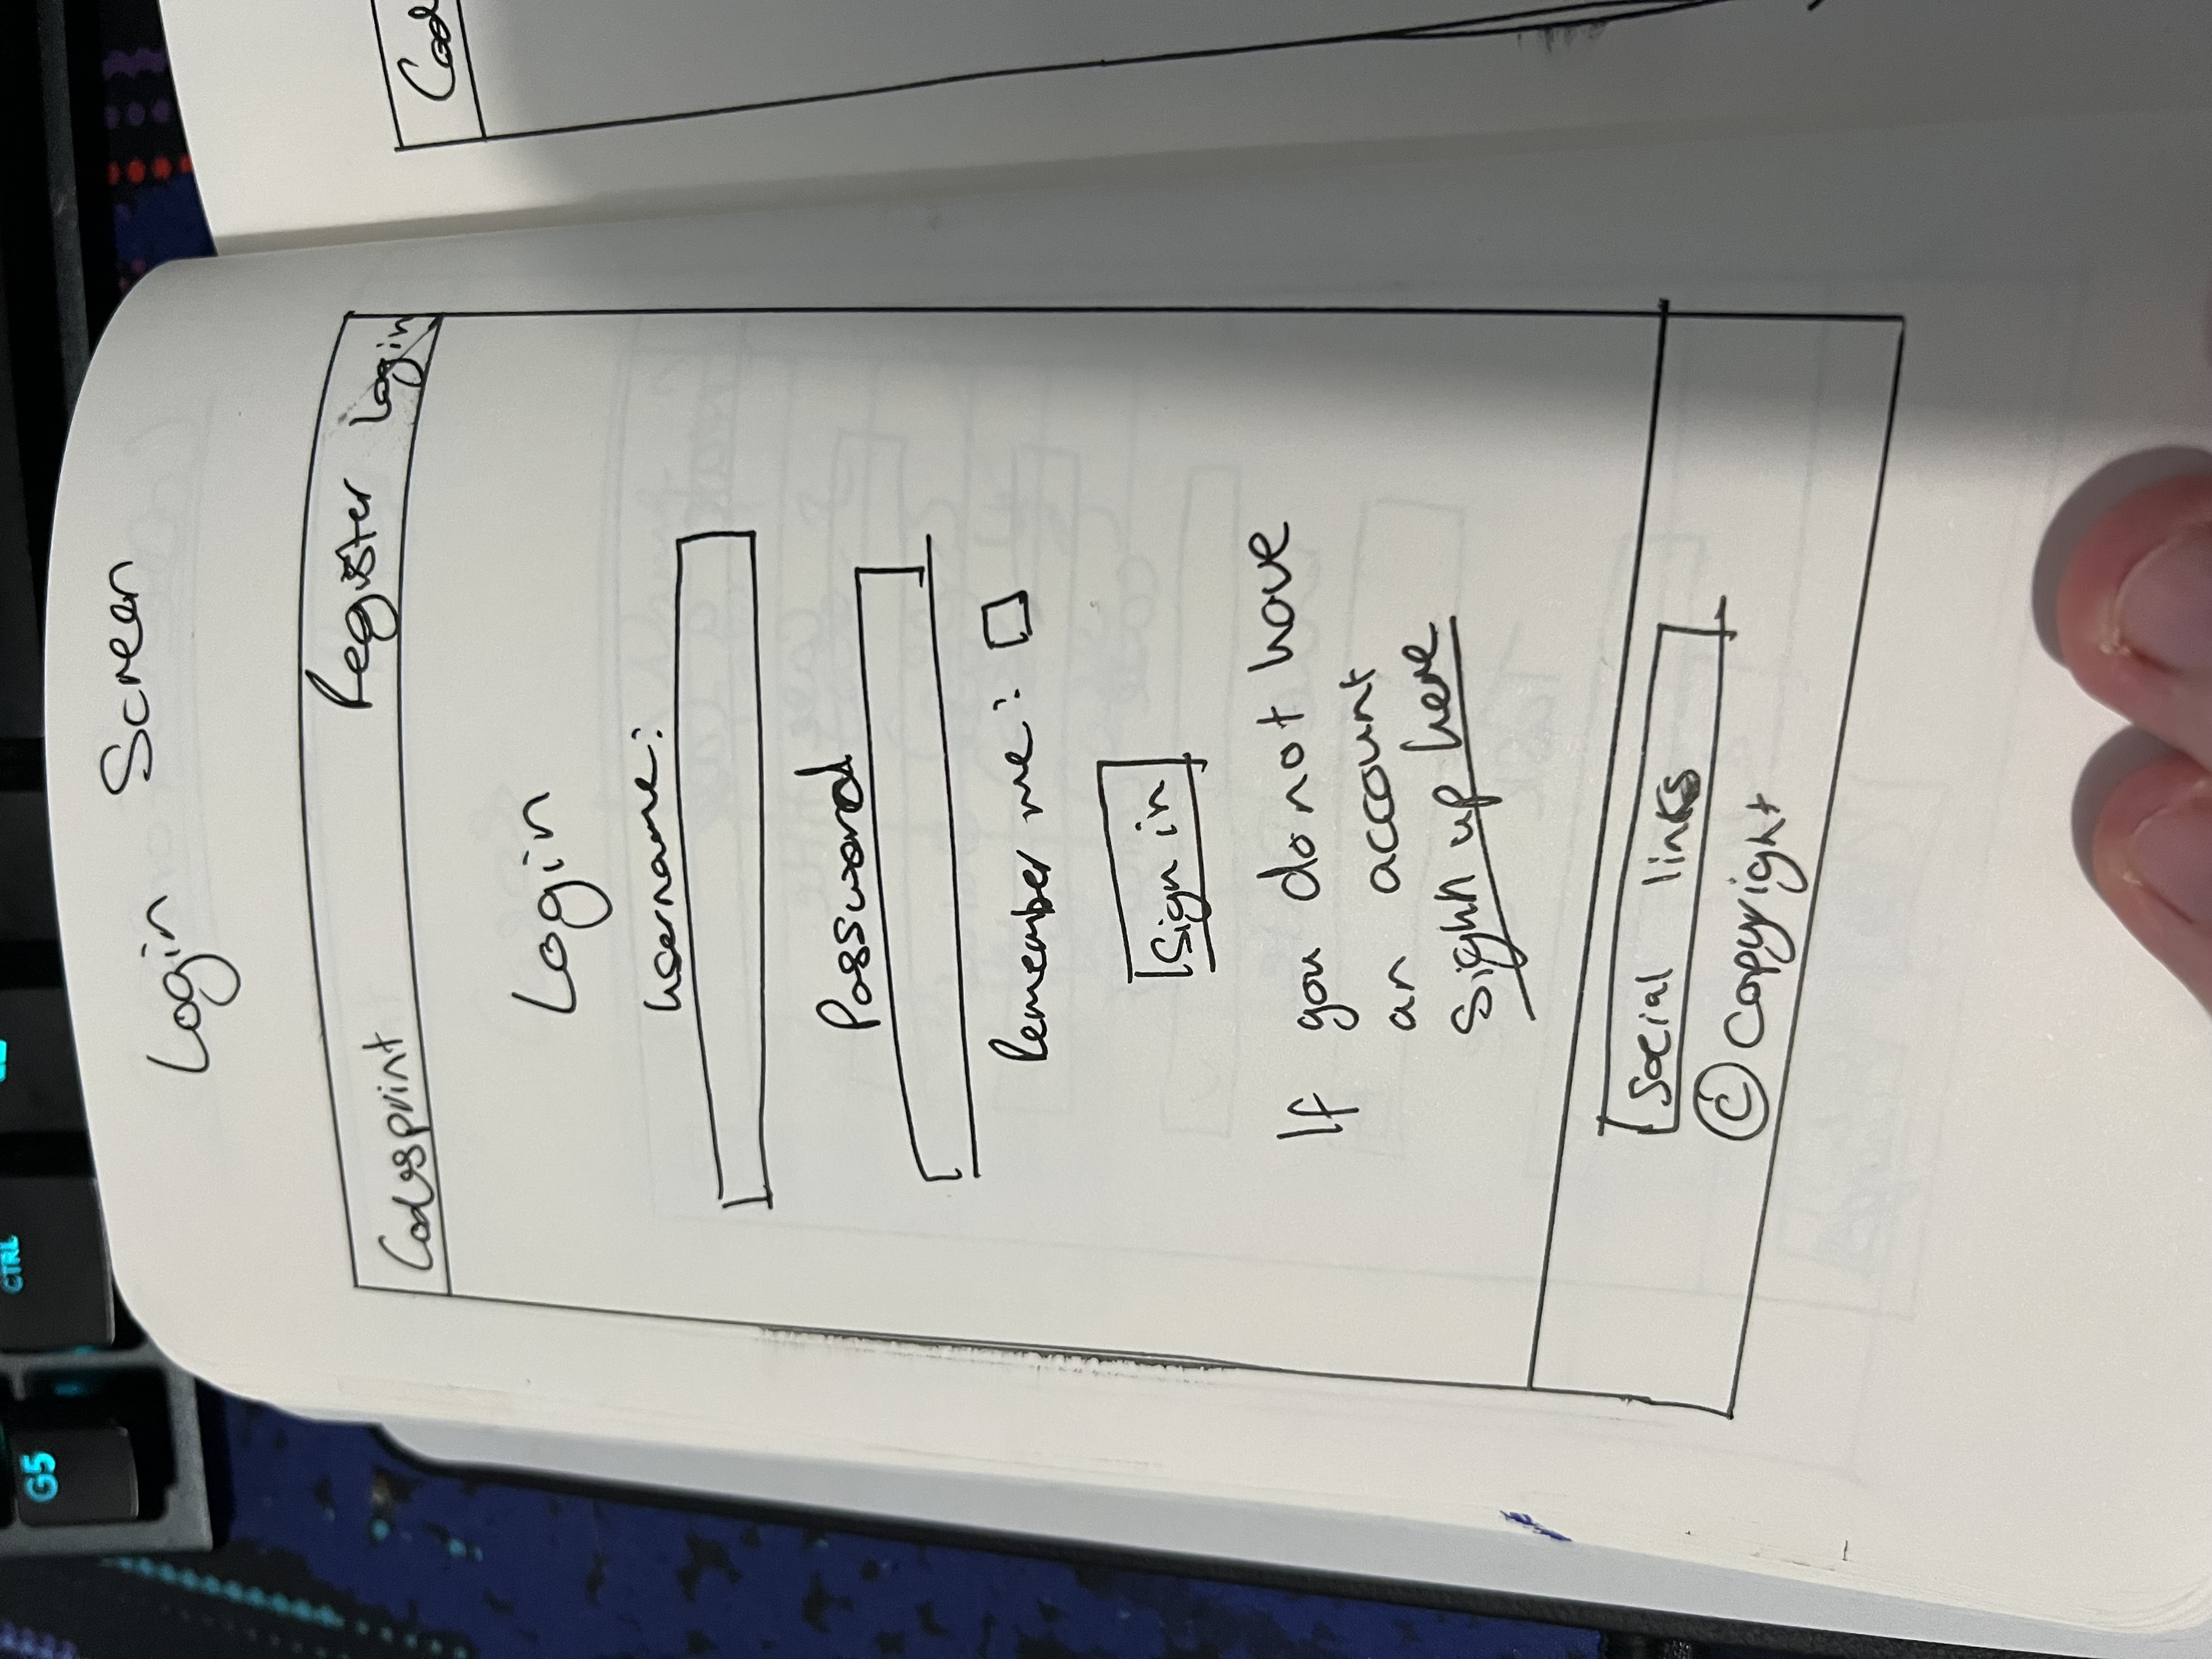 G5
CTRL
Login Screen
Codesprint Register Login
Login
Username:
Password
Remember me:
Sign in
If you do not have
an account
Sighn up here
Social links
© Copyright